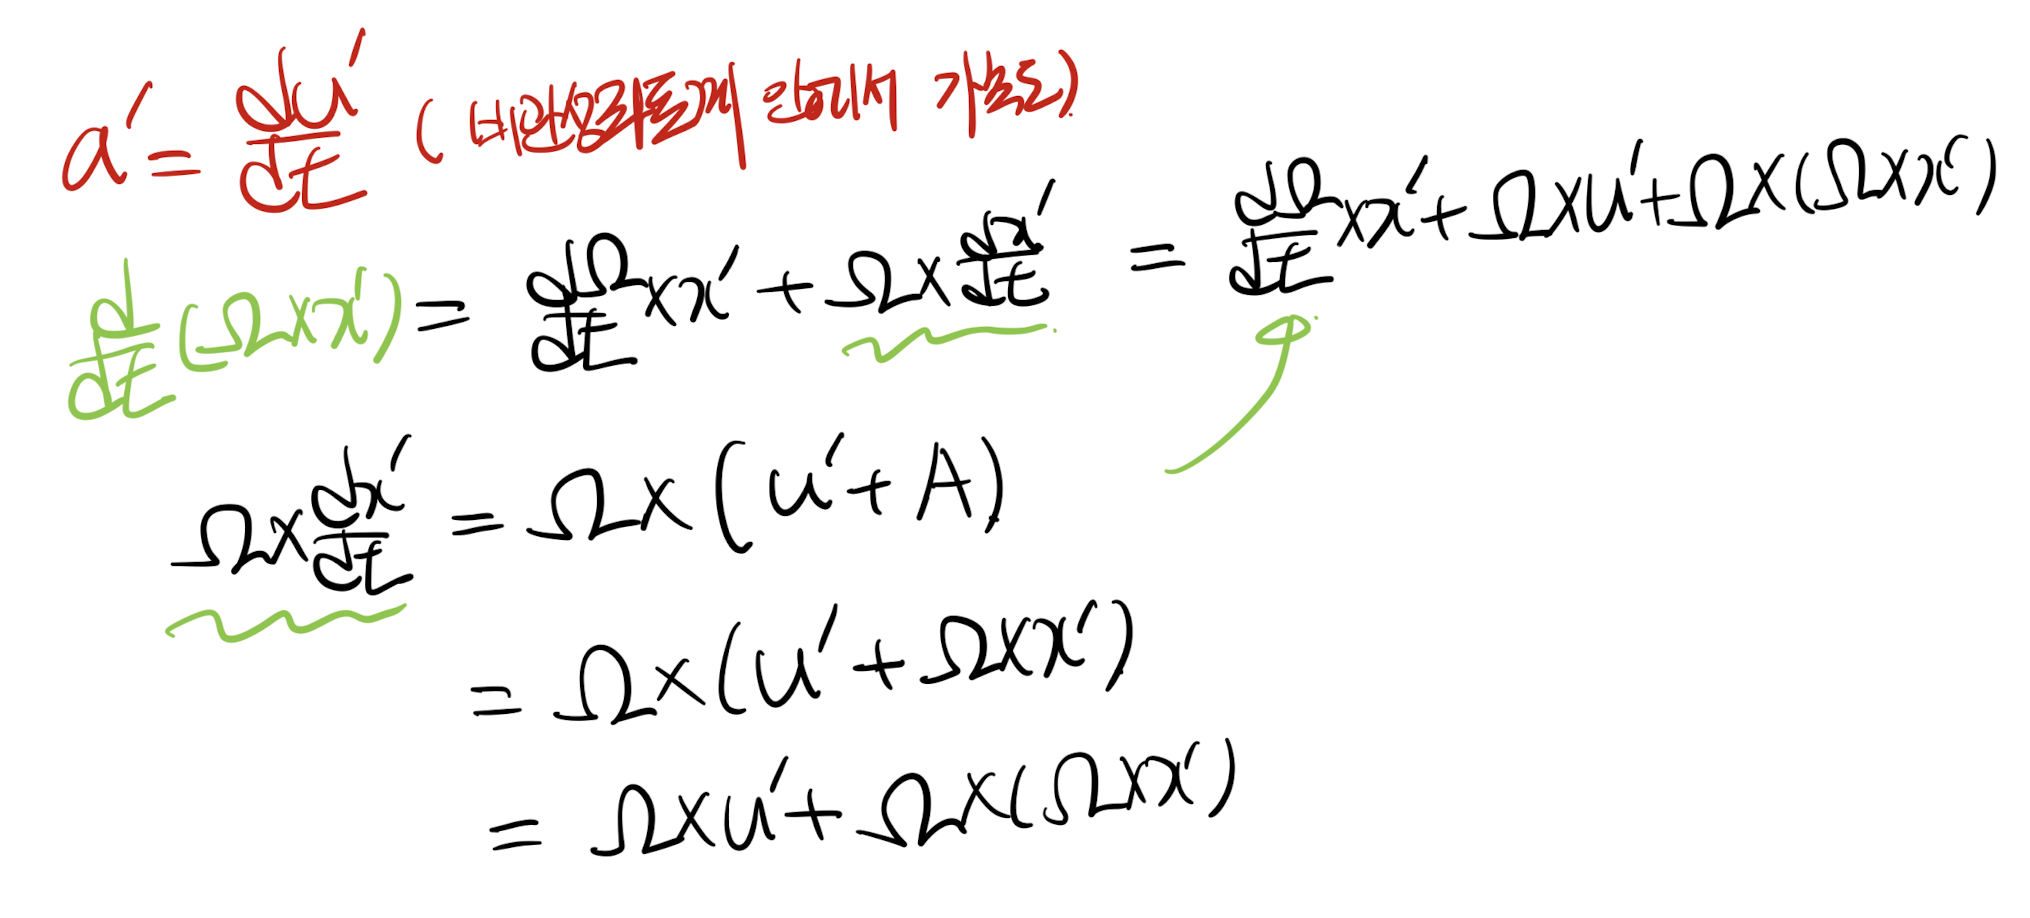 a′ = du′/dt (비관성좌표계 안에서 가속도)
d/dt (Ω×x′) = dΩ/dt ×x′ + Ω× dx′/dt = dΩ/dt ×x′ + Ω×u′ + Ω×(Ω×x′)
Ω× dx′/dt = Ω× (u′ + A)
= Ω×(u′ + Ω×x′)
= Ω×u′ + Ω×(Ω×x′)